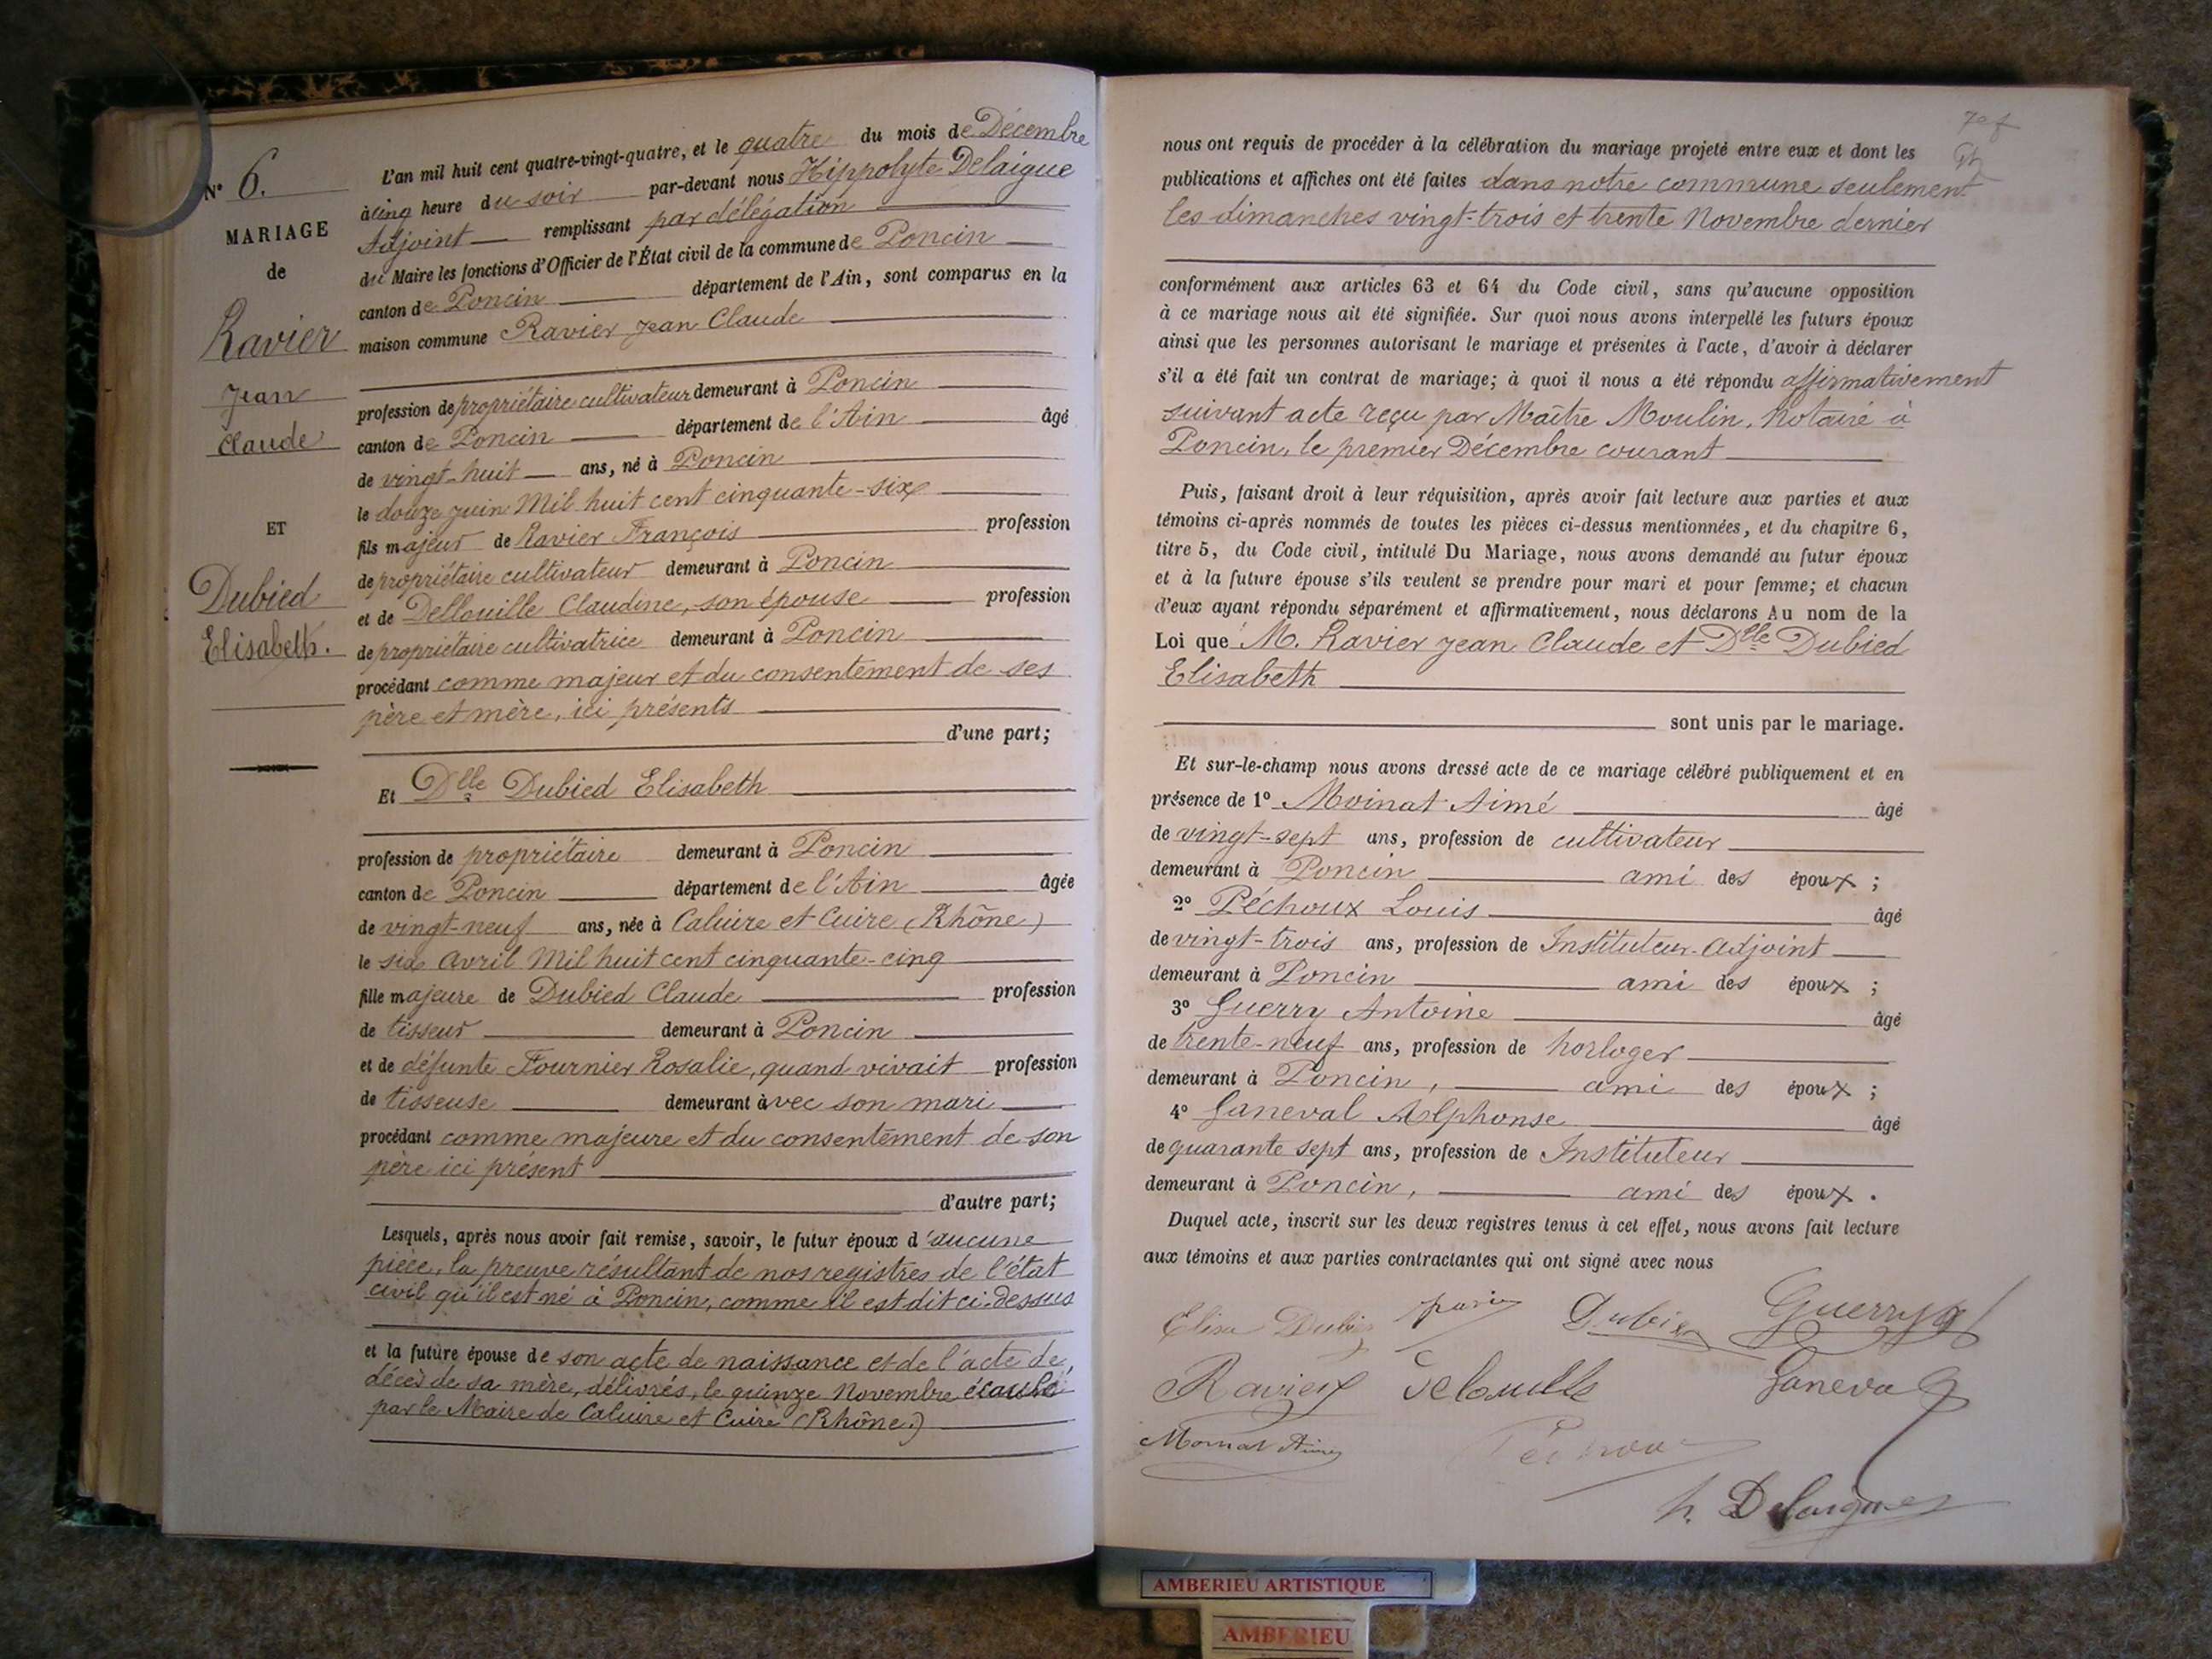 N° 6.
MARIAGE
de
Ravier
Jean
Claude
ET
Dubied
Elisabeth.
L'an mil huit cent quatre-vingt-quatre, et le quatre du mois de Décembre
à cinq heure du soir par-devant nous Hippolyte Delaigue
Adjoint remplissant par délégation
du Maire les fonctions d'Officier de l'État civil de la commune de Poncin
canton de Poncin département de l'Ain, sont comparus en la
maison commune Ravier Jean Claude
profession de propriétaire cultivateur demeurant à Poncin
canton de Poncin département de l'Ain âgé
de vingt-huit ans, né à Poncin
le douze juin Mil huit cent cinquante-six
fils majeur de Ravier François profession
de propriétaire cultivateur demeurant à Poncin
et de Dellouille Claudine, son épouse profession
de propriétaire cultivatrice demeurant à Poncin
procédant comme majeur et du consentement de ses
père et mère, ici présents
d'une part;
Et Dlle Dubied Elisabeth
profession de propriétaire demeurant à Poncin
canton de Poncin département de l'Ain âgée
de vingt-neuf ans, née à Caluire et Cuire (Rhône)
le six Avril Mil huit cent cinquante-cinq
fille majeure de Dubied Claude profession
de tisseur demeurant à Poncin
et de défunte Fournier Rosalie, quand vivait profession
de tisseuse demeurant avec son mari
procédant comme majeure et du consentement de son
père ici présent
d'autre part;
Lesquels, après nous avoir fait remise, savoir, le futur époux d'aucune
pièce, la preuve résultant de nos registres de l'état
civil qu'il est né à Poncin, comme il est dit ci-dessus
et la future épouse de son acte de naissance et de l'acte de
décès de sa mère, délivrés, le quinze Novembre écoulé
par le Maire de Caluire et Cuire (Rhône.)
nous ont requis de procéder à la célébration du mariage projeté entre eux et dont les
publications et affiches ont été faites dans notre commune seulement
les dimanches vingt-trois et trente Novembre dernier
conformément aux articles 63 et 64 du Code civil, sans qu'aucune opposition
à ce mariage nous ait été signifiée. Sur quoi nous avons interpellé les futurs époux
ainsi que les personnes autorisant le mariage et présentes à l'acte, d'avoir à déclarer
s'il a été fait un contrat de mariage; à quoi il nous a été répondu affirmativement
suivant acte reçu par Maître Moulin, Notaire à
Poncin, le premier Décembre courant
Puis, faisant droit à leur réquisition, après avoir fait lecture aux parties et aux
témoins ci-après nommés de toutes les pièces ci-dessus mentionnées, et du chapitre 6,
titre 5, du Code civil, intitulé Du Mariage, nous avons demandé au futur époux
et à la future épouse s'ils veulent se prendre pour mari et pour femme; et chacun
d'eux ayant répondu séparément et affirmativement, nous déclarons Au nom de la
Loi que M. Ravier Jean Claude et Dlle Dubied
Elisabeth
sont unis par le mariage.
Et sur-le-champ nous avons dressé acte de ce mariage célébré publiquement et en
présence de 1° Moinat Aimé âgé
de vingt-sept ans, profession de cultivateur
demeurant à Poncin ami des époux ;
2° Péchoux Louis âgé
de vingt-trois ans, profession de Instituteur-Adjoint
demeurant à Poncin ami des époux ;
3° Guerry Antoine âgé
de trente-neuf ans, profession de horloger
demeurant à Poncin, ami des époux ;
4° Ganeval Alphonse âgé
de quarante sept ans, profession de Instituteur
demeurant à Poncin, ami des époux .
Duquel acte, inscrit sur les deux registres tenus à cet effet, nous avons fait lecture
aux témoins et aux parties contractantes qui ont signé avec nous
Elisa Dubied Dubied Guerry
Ravier Delouille Ganeval
Moinat Aimé Péchoux
h. Delaigue
AMBERIEU ARTISTIQUE
AMBERIEU